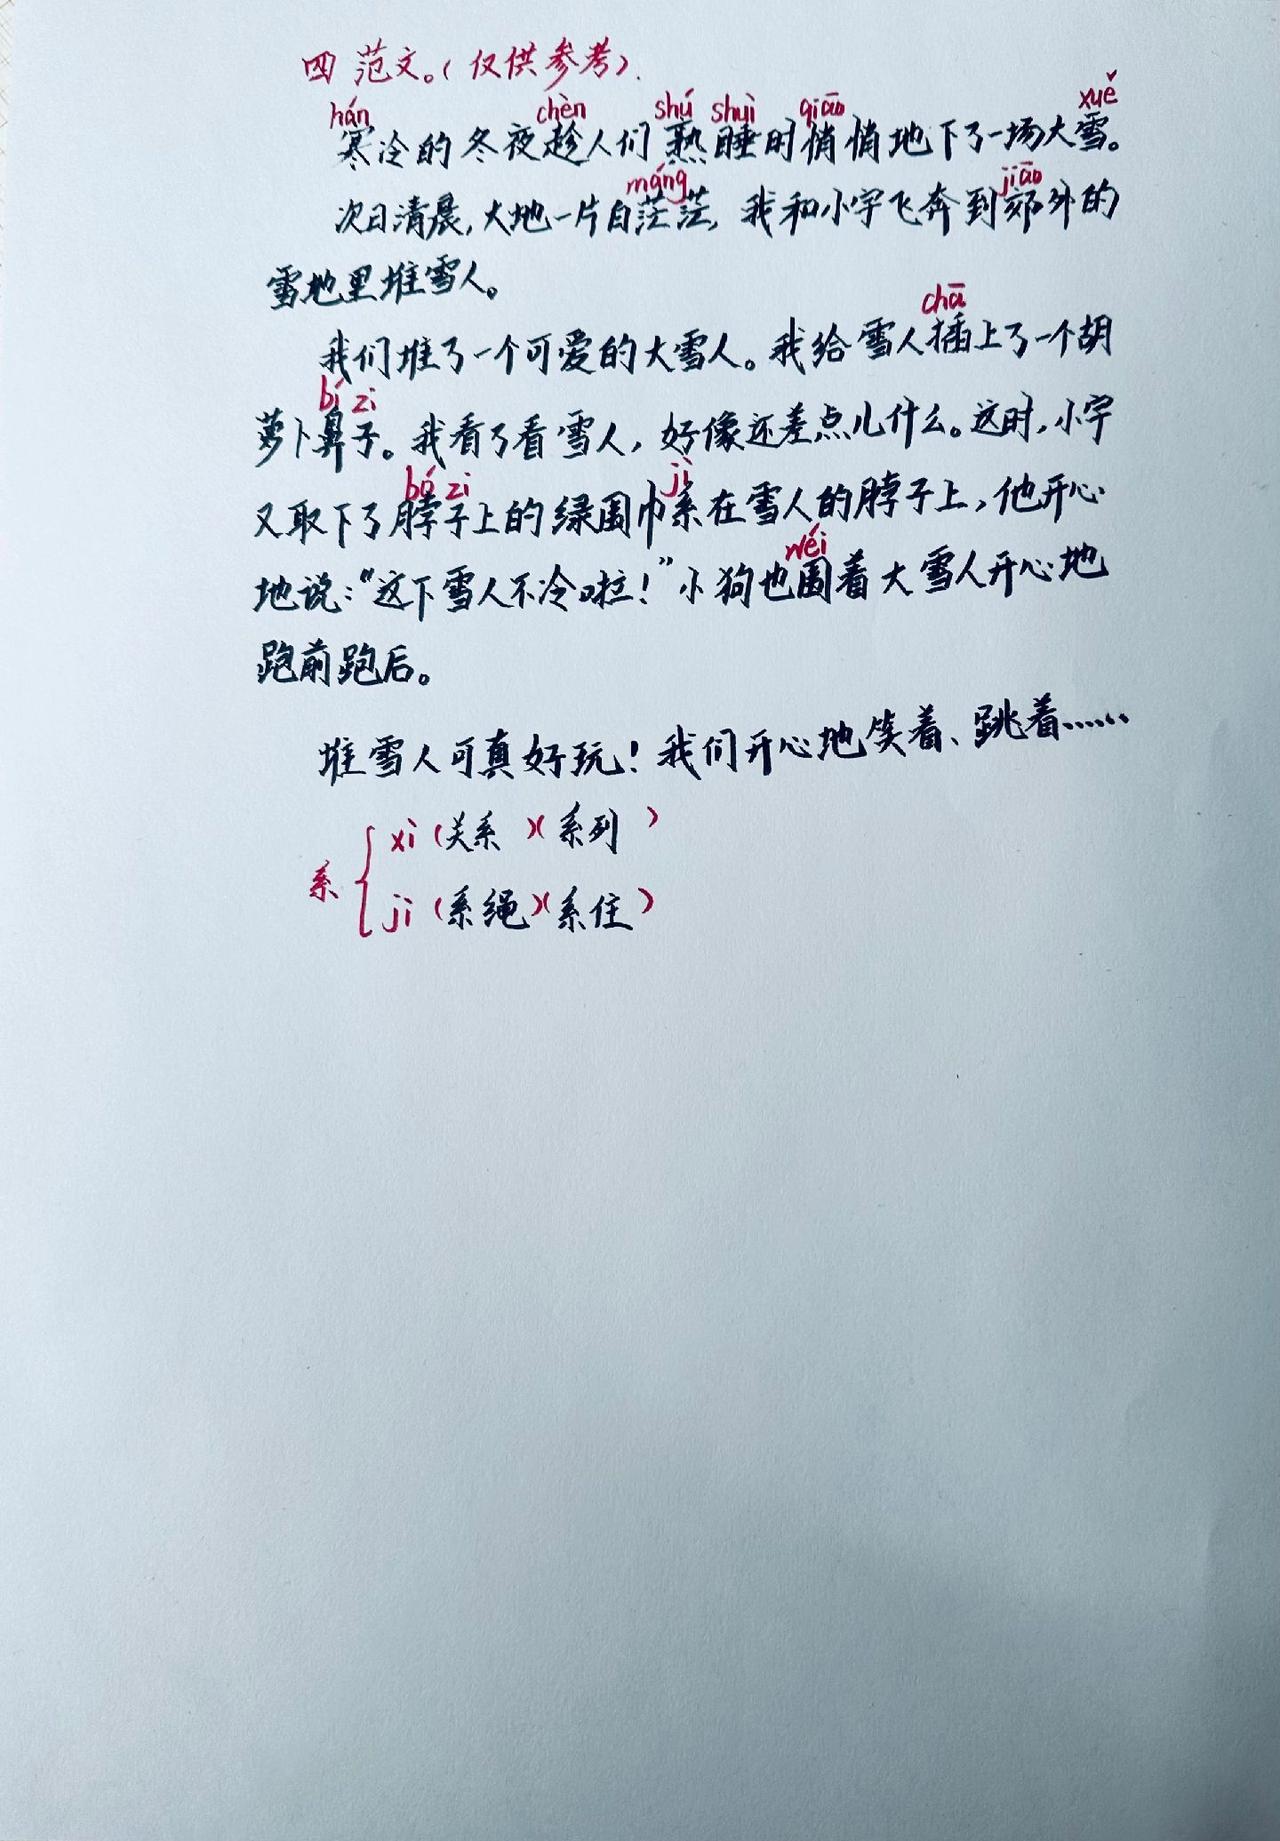 四 范文。（仅供参考）.
hán chèn shú shuì qiāo xuě
寒冷的冬夜趁人们熟睡时悄悄地下了一场大雪。
máng jiāo
次日清晨,大地一片白茫茫,我和小宇飞奔到郊外的
雪地里堆雪人。
chā
我们堆了一个可爱的大雪人。我给雪人插上了一个胡
bí zi
萝卜鼻子。我看了看雪人,好像还差点儿什么。这时,小宇
bó zi jì
又取下了脖子上的绿围巾系在雪人的脖子上,他开心
wéi
地说:“这下雪人不冷啦!”小狗也围着大雪人开心地
跑前跑后。
堆雪人可真好玩!我们开心地笑着、跳着……
xì（关系）（系列）
系
jì（系绳）（系住）